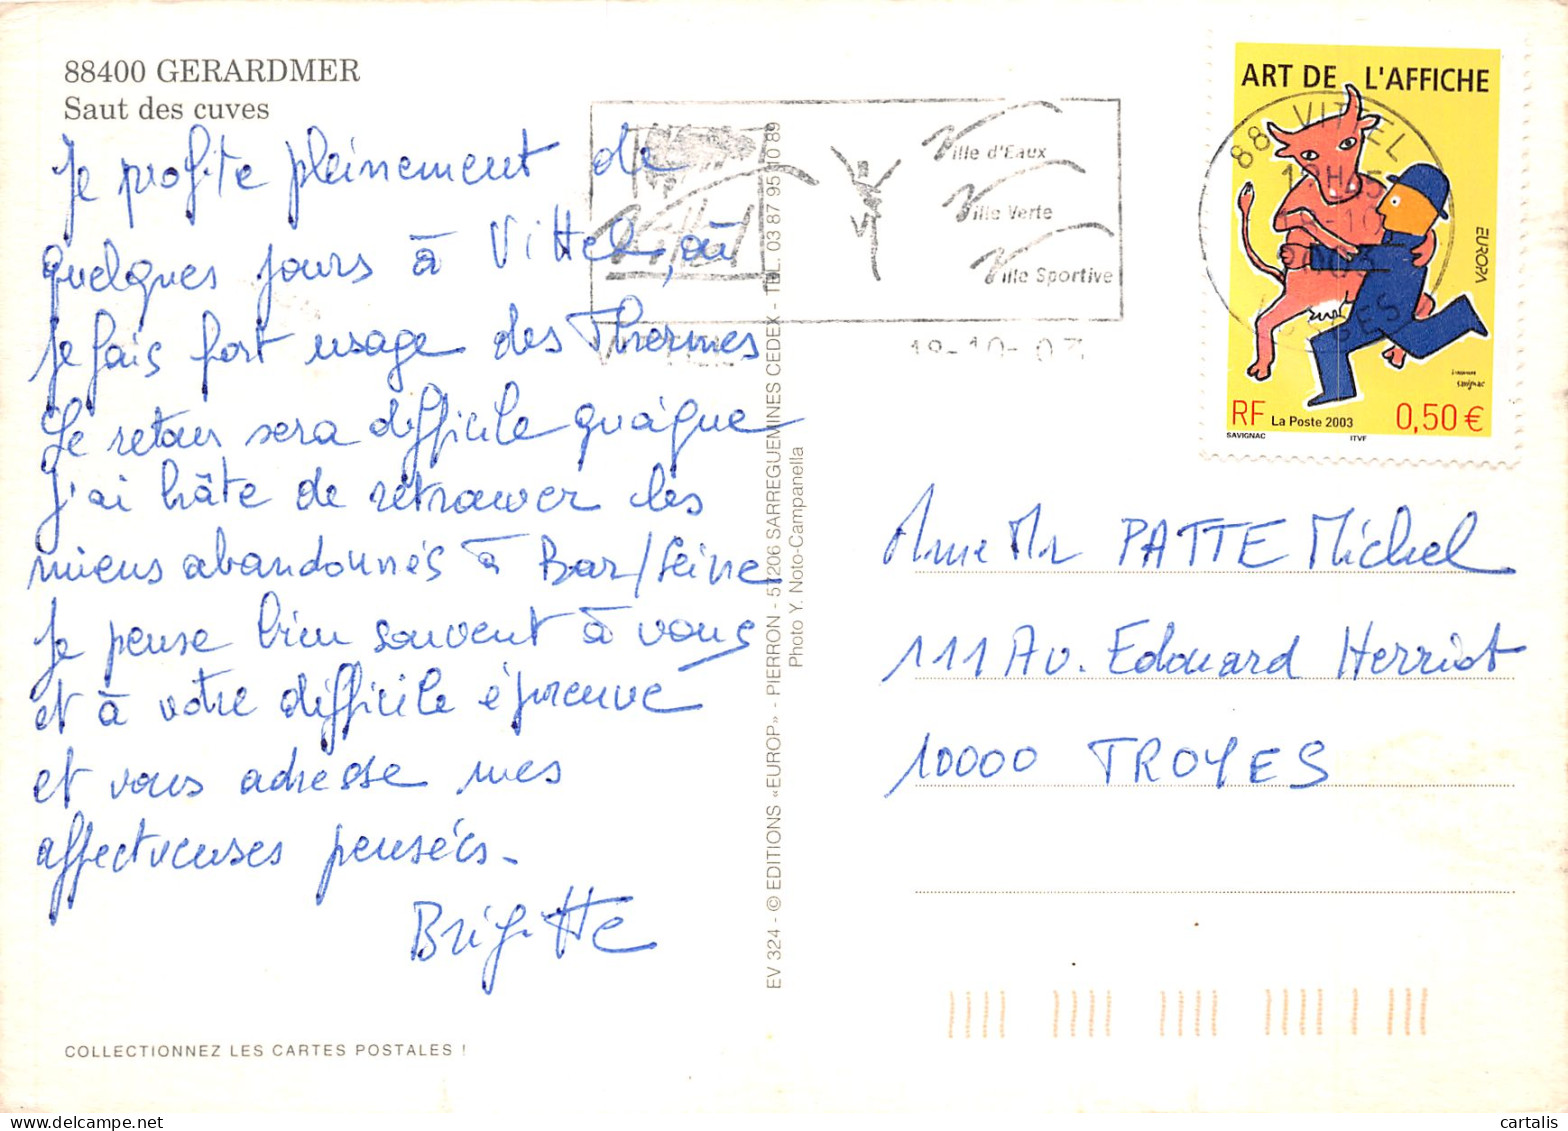 88400 GERARDMER
Saut des cuves
Je profite pleinement de
quelques jours à Vittel, où
je fais fort usage des Thermes
Le retour sera difficile quoique
j'ai hâte de retrouver les
miens abandonnés à Bar/Seine
Je pense bien souvent à vous
et à votre difficile épreuve
et vous adresse mes
affectueuses pensées.
Brigitte
COLLECTIONNEZ LES CARTES POSTALES !
EV 324 - © EDITIONS «EUROP» - PIERRON - 57206 SARREGUEMINES CEDEX - TEL. 03 87 95 10 89
Photo Y. Noto-Campanella
Vittel
Ville d'Eaux
Ville Verte
Ville Sportive
18-10-03
88 VITTEL
VOSGES
ART DE L'AFFICHE
EUROPA
savignac
RF La Poste 2003 0,50 €
SAVIGNAC ITVF
Mme Mr PATTE Michel
111 Av. Edouard Herriot
10000 TROYES
cartalis